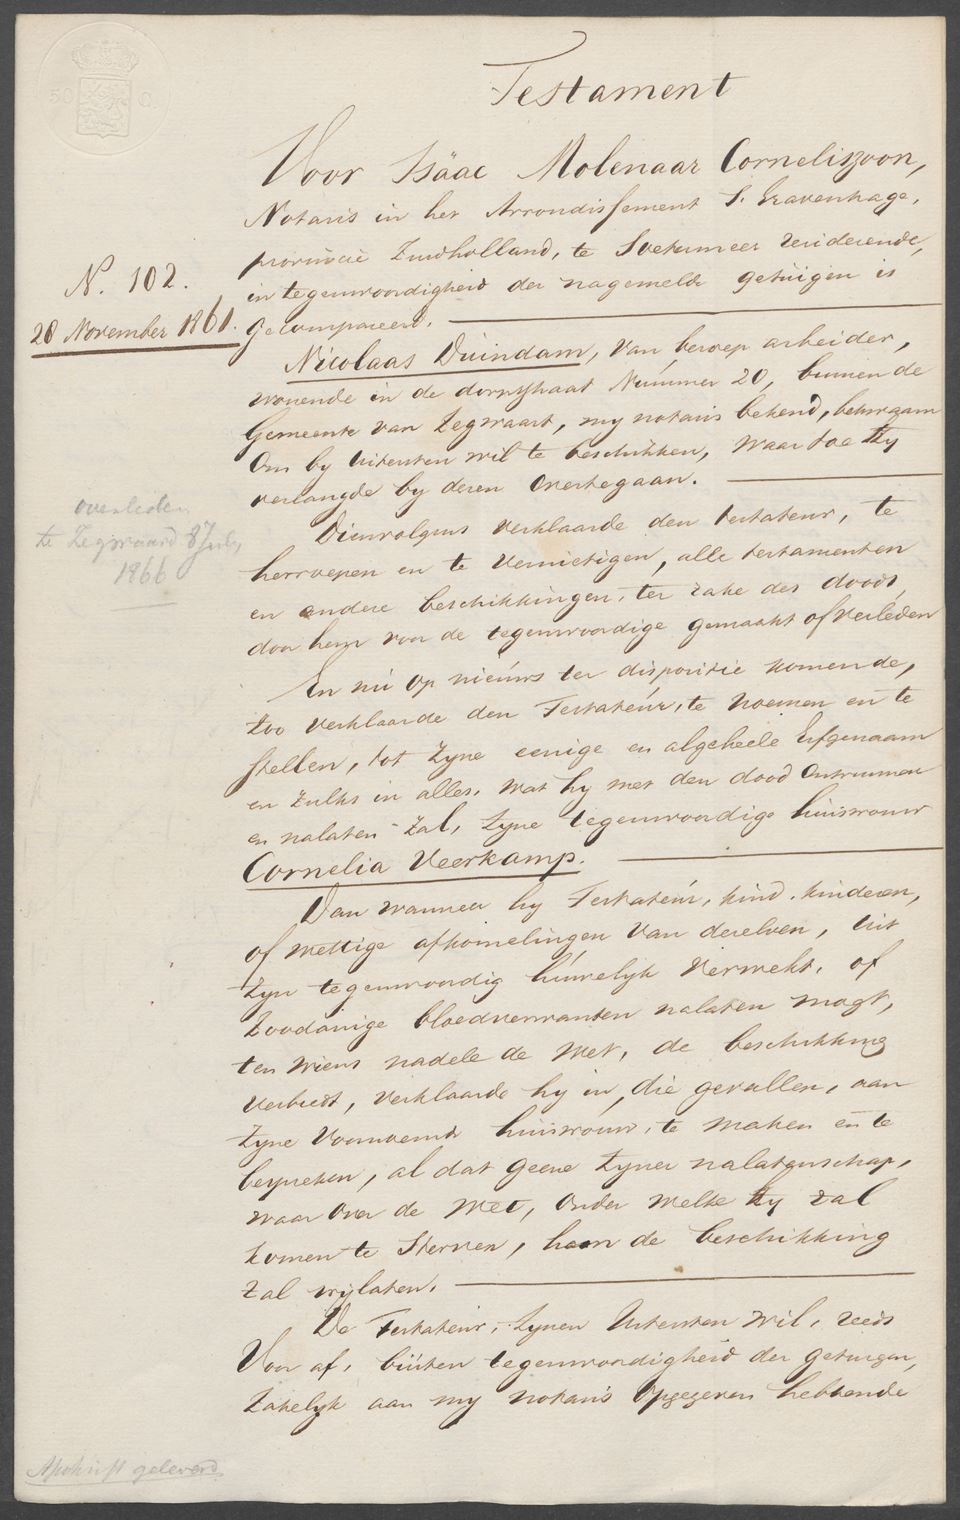 50 C
Testament
Voor Isäac Molenaar Corneliszoon,
Notaris in het Arrondissement S. Gravenhage,
provincie Zuidholland, te Soetermeer resideerende,
in tegenwoordigheid der nagemelde getuigen is
gecompareerd.
N. 102.
28 November 1861.
Nicolaas Duindam, van beroep arbeider,
wonende in de dorpsstraat Nummer 20, binnen de
Gemeente van Zegwaart, my notaris bekend, bekwaam
Om by uitersten wil te beschikken, waar toe hy
verlangde by dezen overtegaan.
overleden
te Zegwaard 8 July
1866
Dienvolgens verklaarde den testateur, te
herroepen en te vernietigen, alle testamenten
en andere beschikkingen, ter zake des doods,
door hem voor de tegenwoordige gemaakt of verleden
En nu op nieuws ter dispositie komende,
zoo verklaarde den Testateur, te noemen en te
stellen, tot Zyne eenige en algeheele Erfgenaam
en zulks in alles, wat hy met den dood Ontruimen
en nalaten zal, Zyne tegenwoordige huisvrouw
Cornelia Veerkamp.
Dan wanneer hy Testateur, kind, kinderen,
of wettige afkomelingen van dezelven, uit
zyn tegenwoordig huwelyk verwekt, of
Zoodanige bloedverwanten nalaten mogt,
ten wiens nadele de wet, de beschikking
verbiedt, verklaarde hy in die gevallen, aan
Zyne Voornoemde huisvrouw, te maken en te
bespreken, al dat geene Zyner nalatenschap,
waar over de wet, onder welke hy zal
komen te Sterven, hem de beschikking
Zal vrijlaten.
De Testateur, Zynen Uitersten wil, reeds
Voor af, buiten tegenwoordigheid der getuigen,
Zakelyk aan my notaris Opgegeven hebbende
Afschrift geleverd